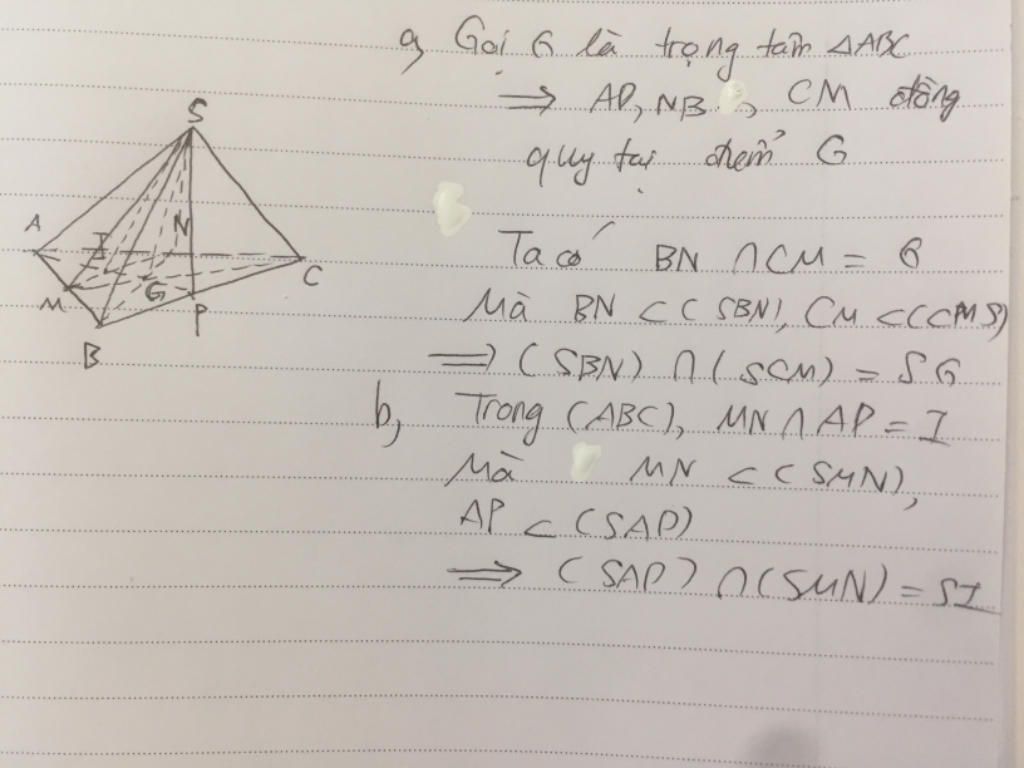 a, Gọi G là trọng tâm ΔABC
⇒ AP, NB, CM đồng
quy tại điểm G
Ta có BN ∩ CM = G
Mà BN ⊂ (SBN), CM ⊂ (CMS)
⇒ (SBN) ∩ (SCM) = SG
b, Trong (ABC), MN ∩ AP = I
Mà MN ⊂ (SMN),
AP ⊂ (SAP)
⇒ (SAP) ∩ (SMN) = SI
S
A
I
N
M
G
C
P
B